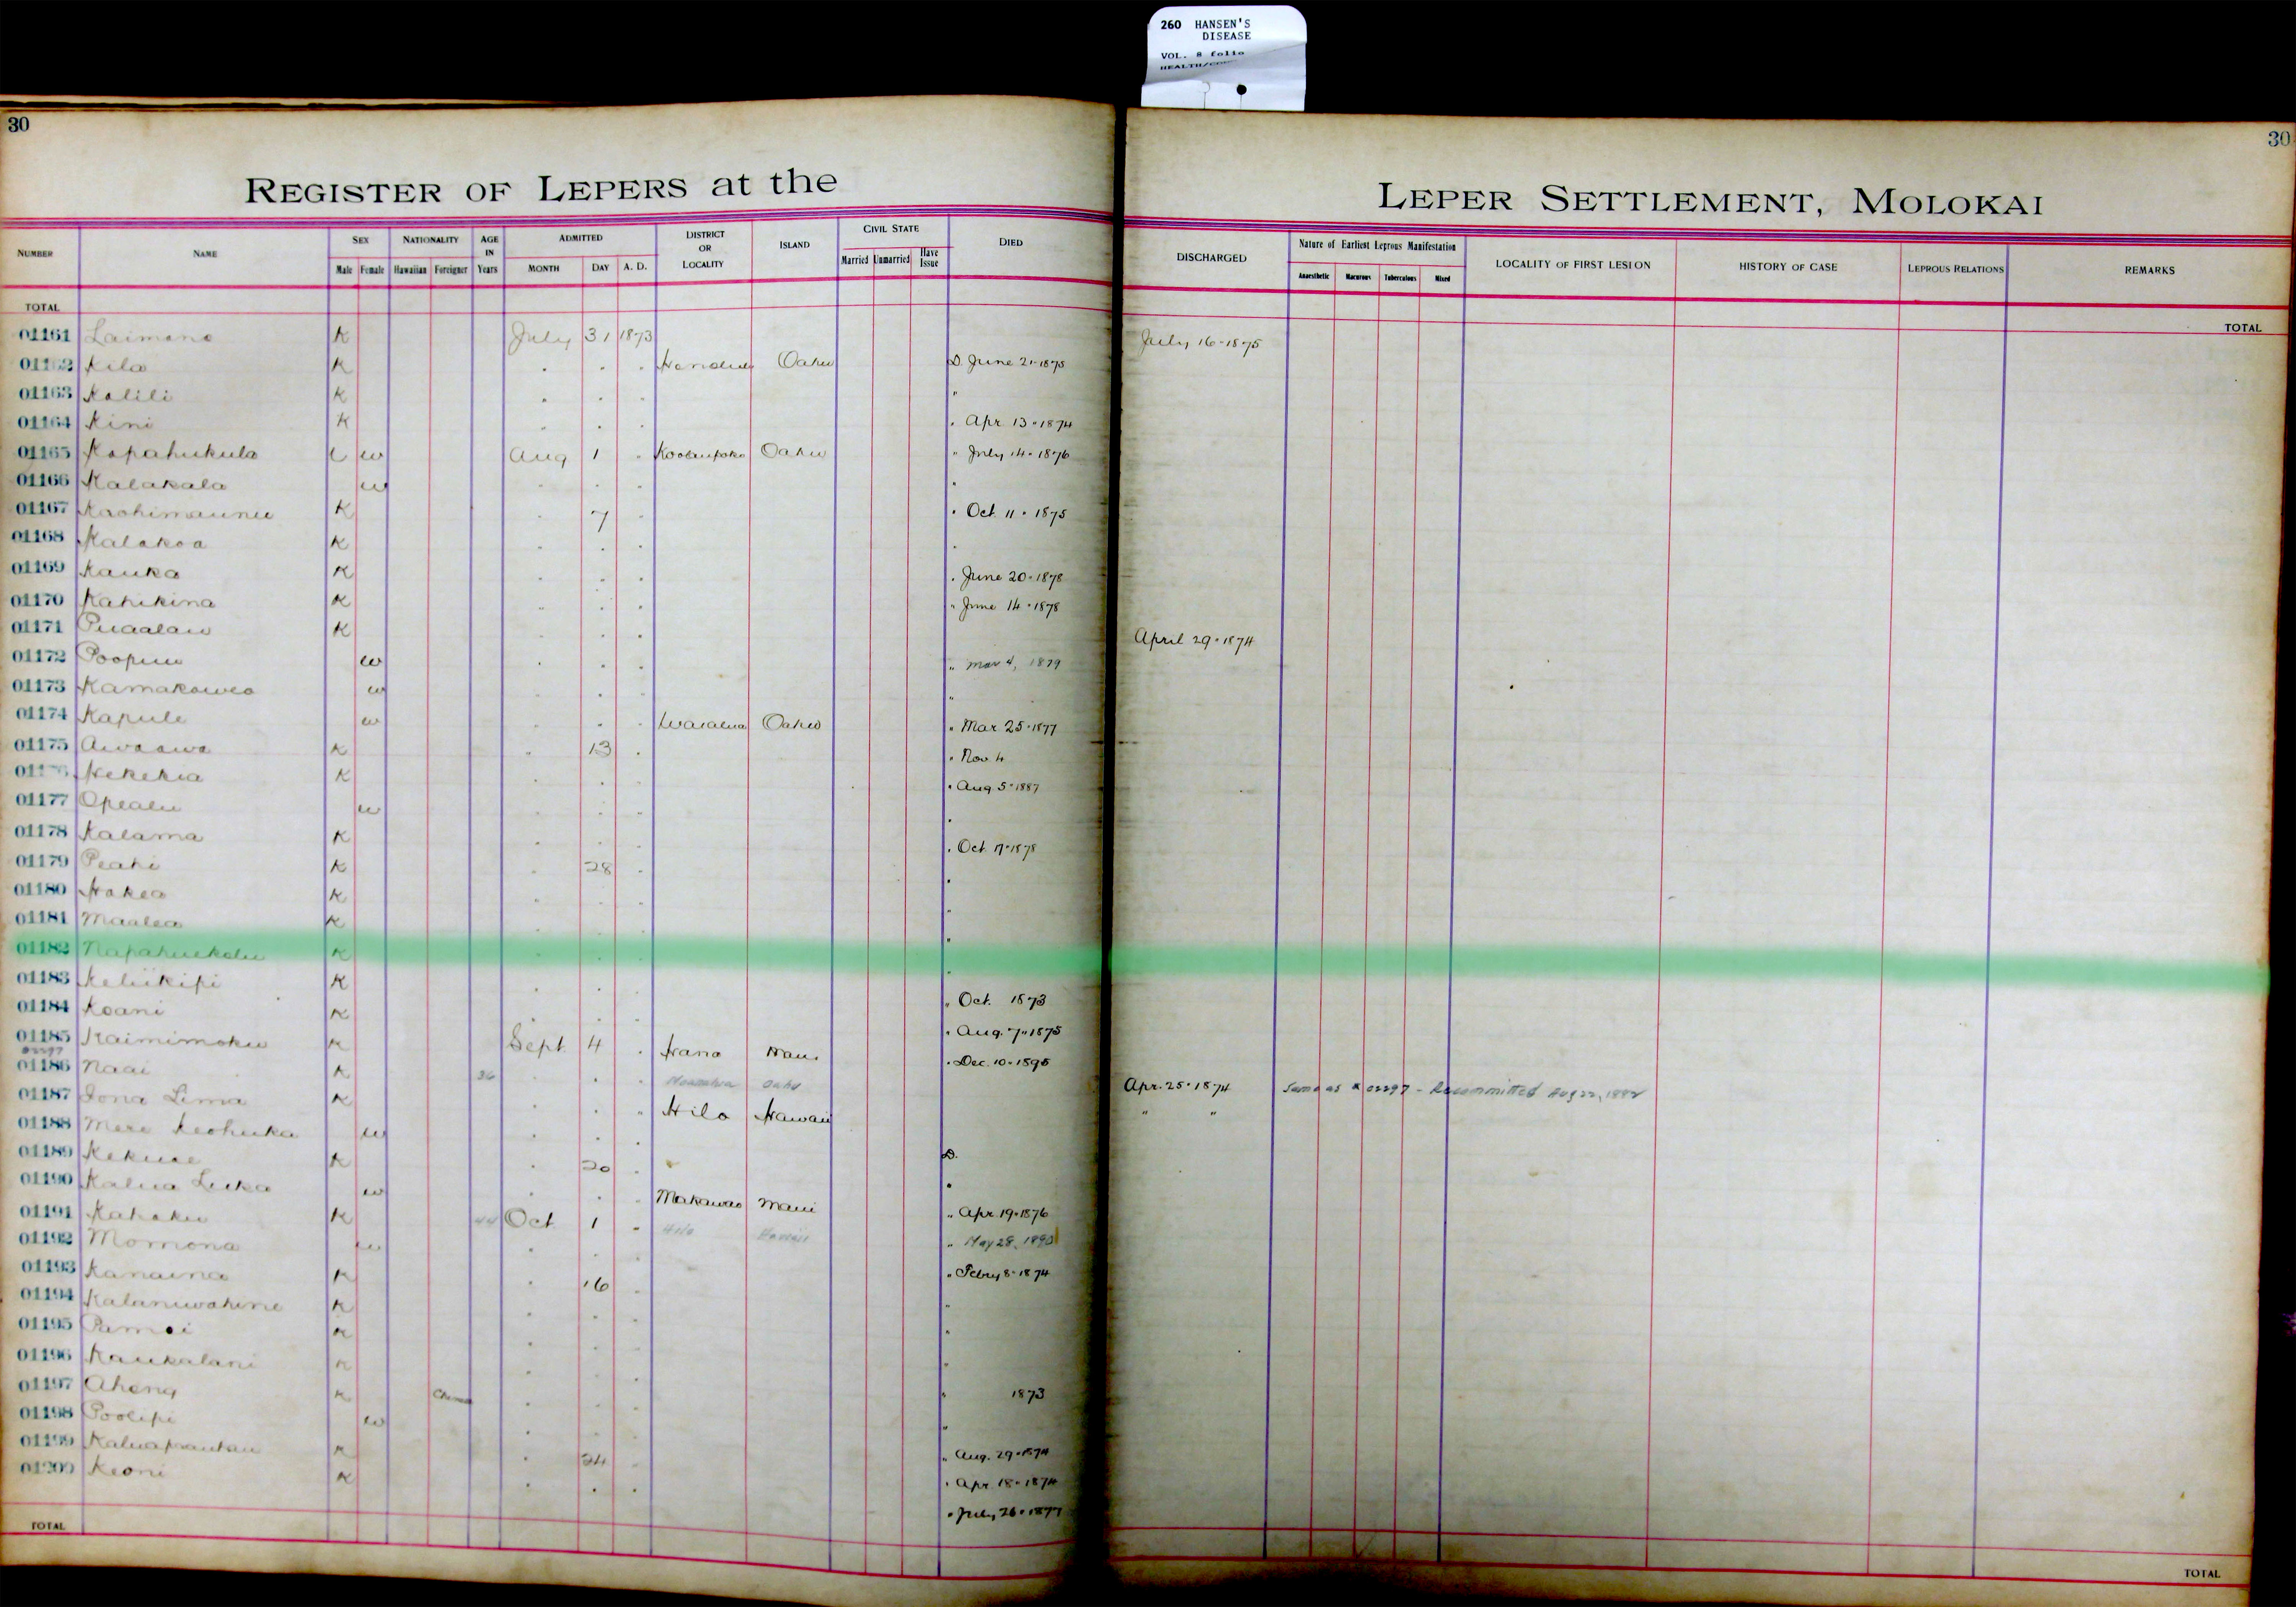 260 HANSEN'S
DISEASE
VOL. 8 folio
30
30
REGISTER OF LEPERS at the
LEPER SETTLEMENT, MOLOKAI
NUMBER NAME SEX NATIONALITY AGE IN ADMITTED DISTRICT OR LOCALITY ISLAND CIVIL STATE DIED DISCHARGED Nature of Earliest Leprous Manifestation LOCALITY OF FIRST LESION HISTORY OF CASE LEPROUS RELATIONS REMARKS
Male Female Hawaiian Foreigner Years MONTH DAY A. D. Married Unmarried Have Issue Anaesthetic Macurous Tuberculous Mixed
TOTAL
TOTAL
01161 Laimana K July 31 1873 July 16-1875
Kila K " " " Honolulu Oahu D. June 21-1875
01163 Kalili K " " " "
01164 Kini K " " " " Apr. 13-1874
01165 Kapahukula w Aug 1 " Koolaupoko Oahu " July 14-1876
01166 Kalakala w " " " "
01167 K " 7 " " Oct. 11-1875
01168 Kalakoa K " " " "
01169 Kauka K " " " " June 20-1878
01170 Kahikina K " " " " June 14-1878
01171 Puaalau K " " " April 29-1874
01172 w " " " " Mar 4, 1879
01173 w " " " "
01174 Kapule w " " " Waialua Oahu " Mar. 25-1877
01175 Awaawa K " 13 " " Nov. 4
Hekekia K " " " " Aug 5-1887
01177 Opealu w " " " "
01178 Kalama K " " " " Oct. 17-1878
01179 Peahi K " 28 " "
01180 Hakea K " " " "
01181 Maalea K " " " "
01182 Napahuekolu K " " " "
01183 Keliikipi K " " " " Oct. 1873
01184 Koani K " " " " Aug. 7-1875
01185 Kaimimoku K Sept. 4 " Hana Maui " Dec. 10-1895
01186 Naai K 36 " " " Oahu Apr. 25-1874 Same as # 02297 - Recommitted Aug 22, 1882
01187 Iona Lima K " " " Hilo Hawaii " "
01188 Mere Keohuka w " " " D.
01189 Kekuae K " 20 " "
01190 Kalua Luka w " " " Makawao Maui " Apr. 19-1876
01191 Kahaku K 44 Oct 1 " Hilo Hawaii " May 28, 1890
01192 Momona w " " " " Febry 8-1874
01193 Kanaina K " 16 " "
01194 Kalaniwahine K " " " "
01195 K " " " "
01196 Kaukalani K " " " 1873
01197 Aheng K " " " "
01198 Poolipi w " " " " Aug. 29-1874
01199 K " 24 " " Apr. 18-1874
01200 Keoni K " " " " July 26-1877
TOTAL
TOTAL